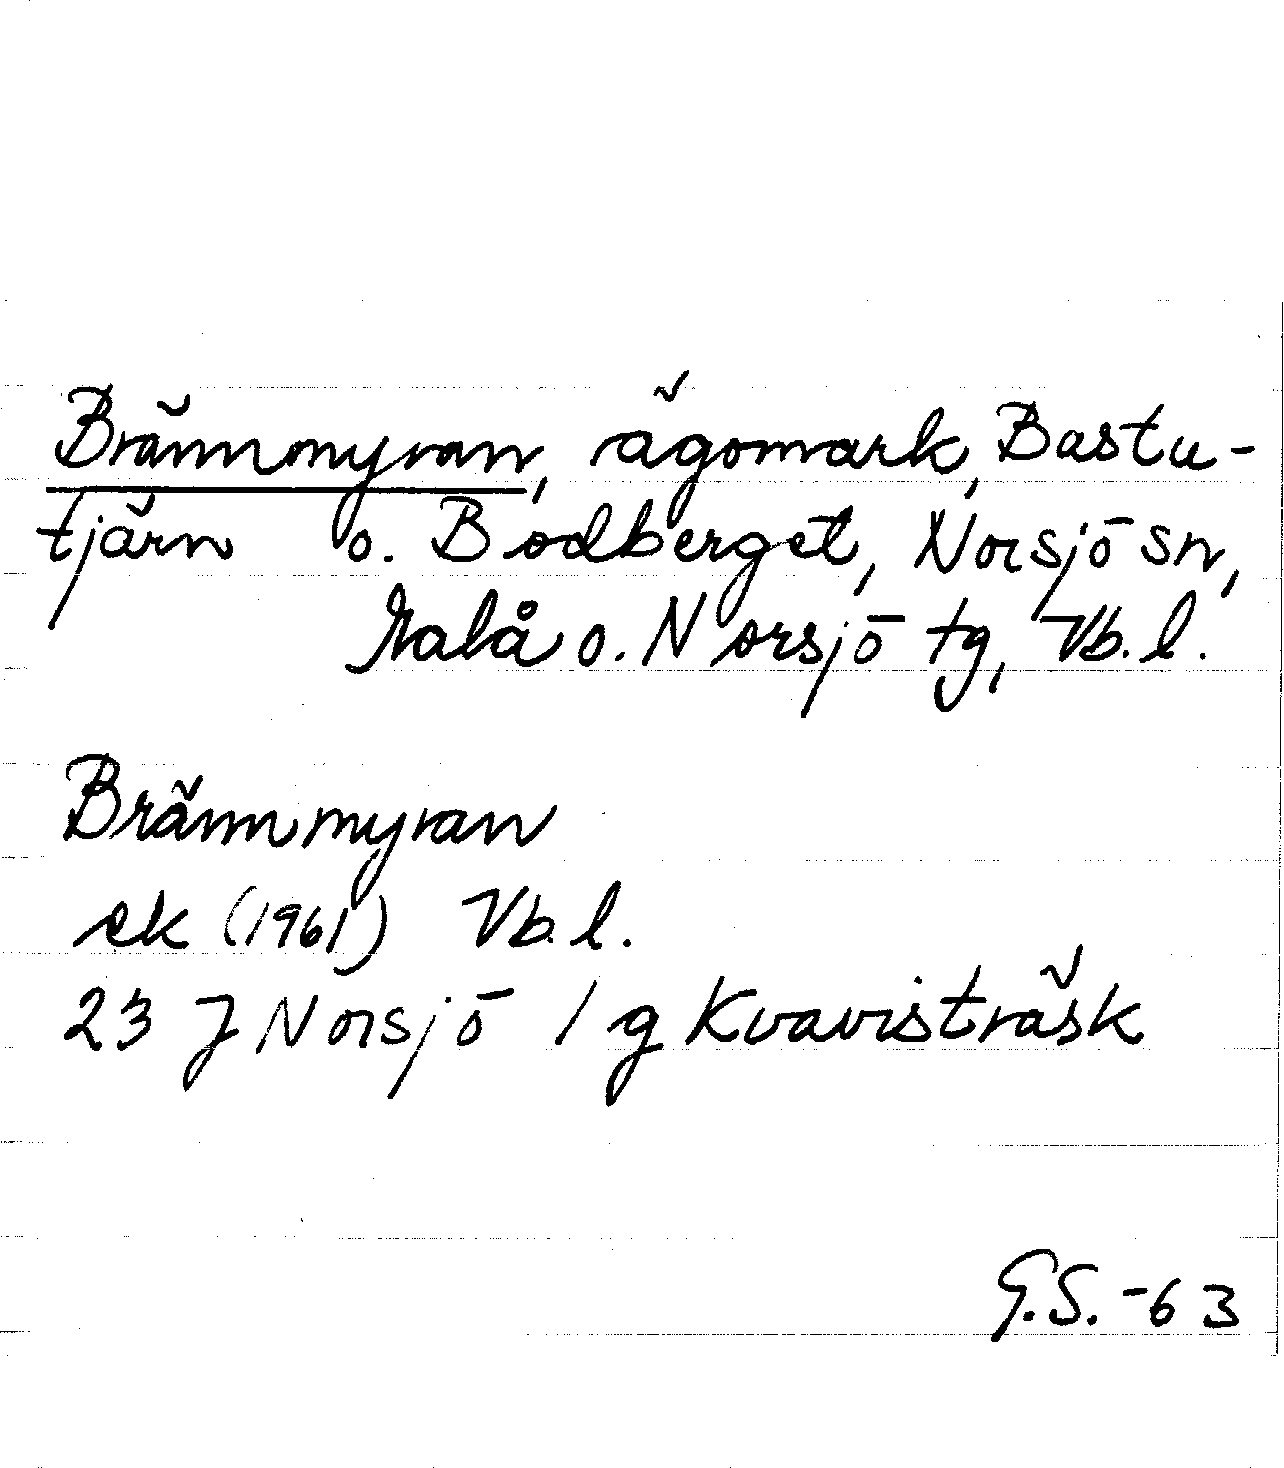 Brännmyran, ägomark, Bastu-
tjärn o. Bodberget, Norsjö sn,
Malå o. Norsjö tg, Vb. l.
Brännmyran
ek (1961) Vb. l.
23 J Norsjö / g Kvavisträsk
G.S. -63